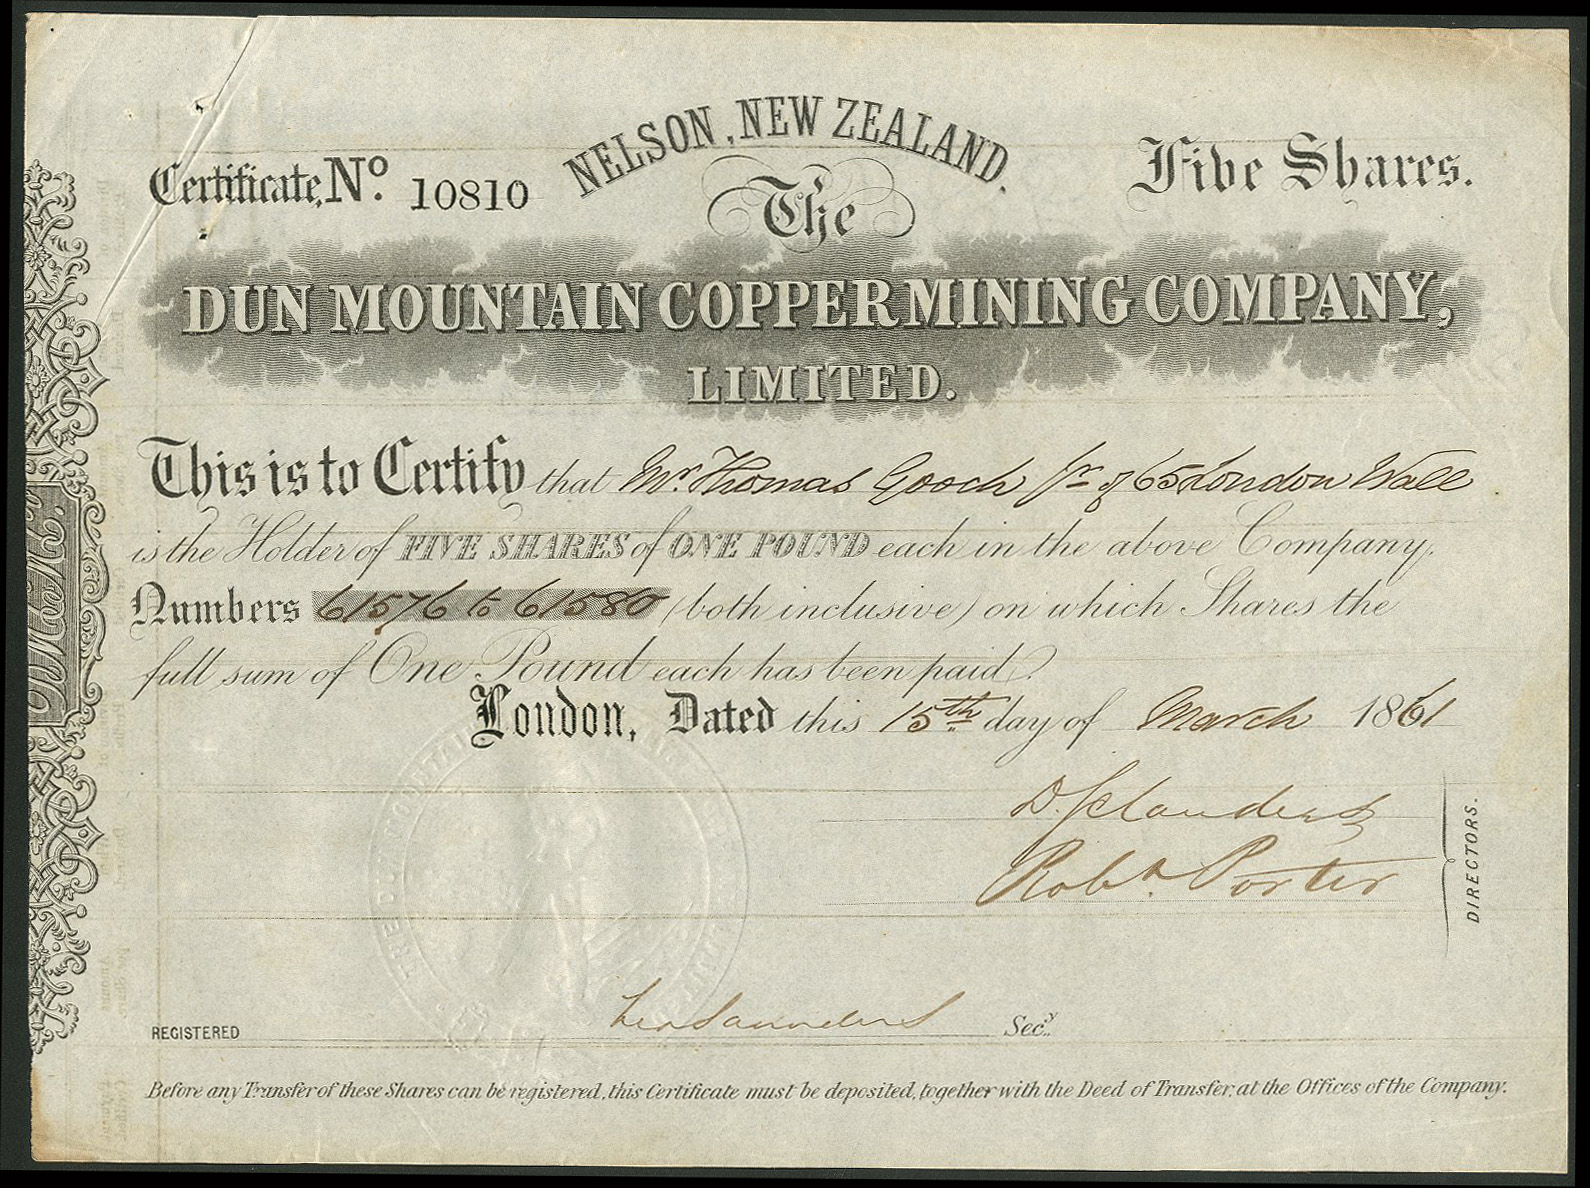 NELSON, NEW ZEALAND.
Certificate, No. 10810
Five Shares.
The
DUN MOUNTAIN COPPER MINING COMPANY,
LIMITED.
This is to Certify that Mr. Thomas Gooch Jr of 65 London Wall
is the Holder of FIVE SHARES of ONE POUND each in the above Company,
Numbers 61576 to 61580 (both inclusive) on which Shares the
full sum of One Pound each has been paid.
London, Dated this 15th day of March 1861
Robt. Porter
DIRECTORS.
REGISTERED
Saunders Secy.
Before any Transfer of these Shares can be registered, this Certificate must be deposited, together with the Deed of Transfer, at the Offices of the Company.